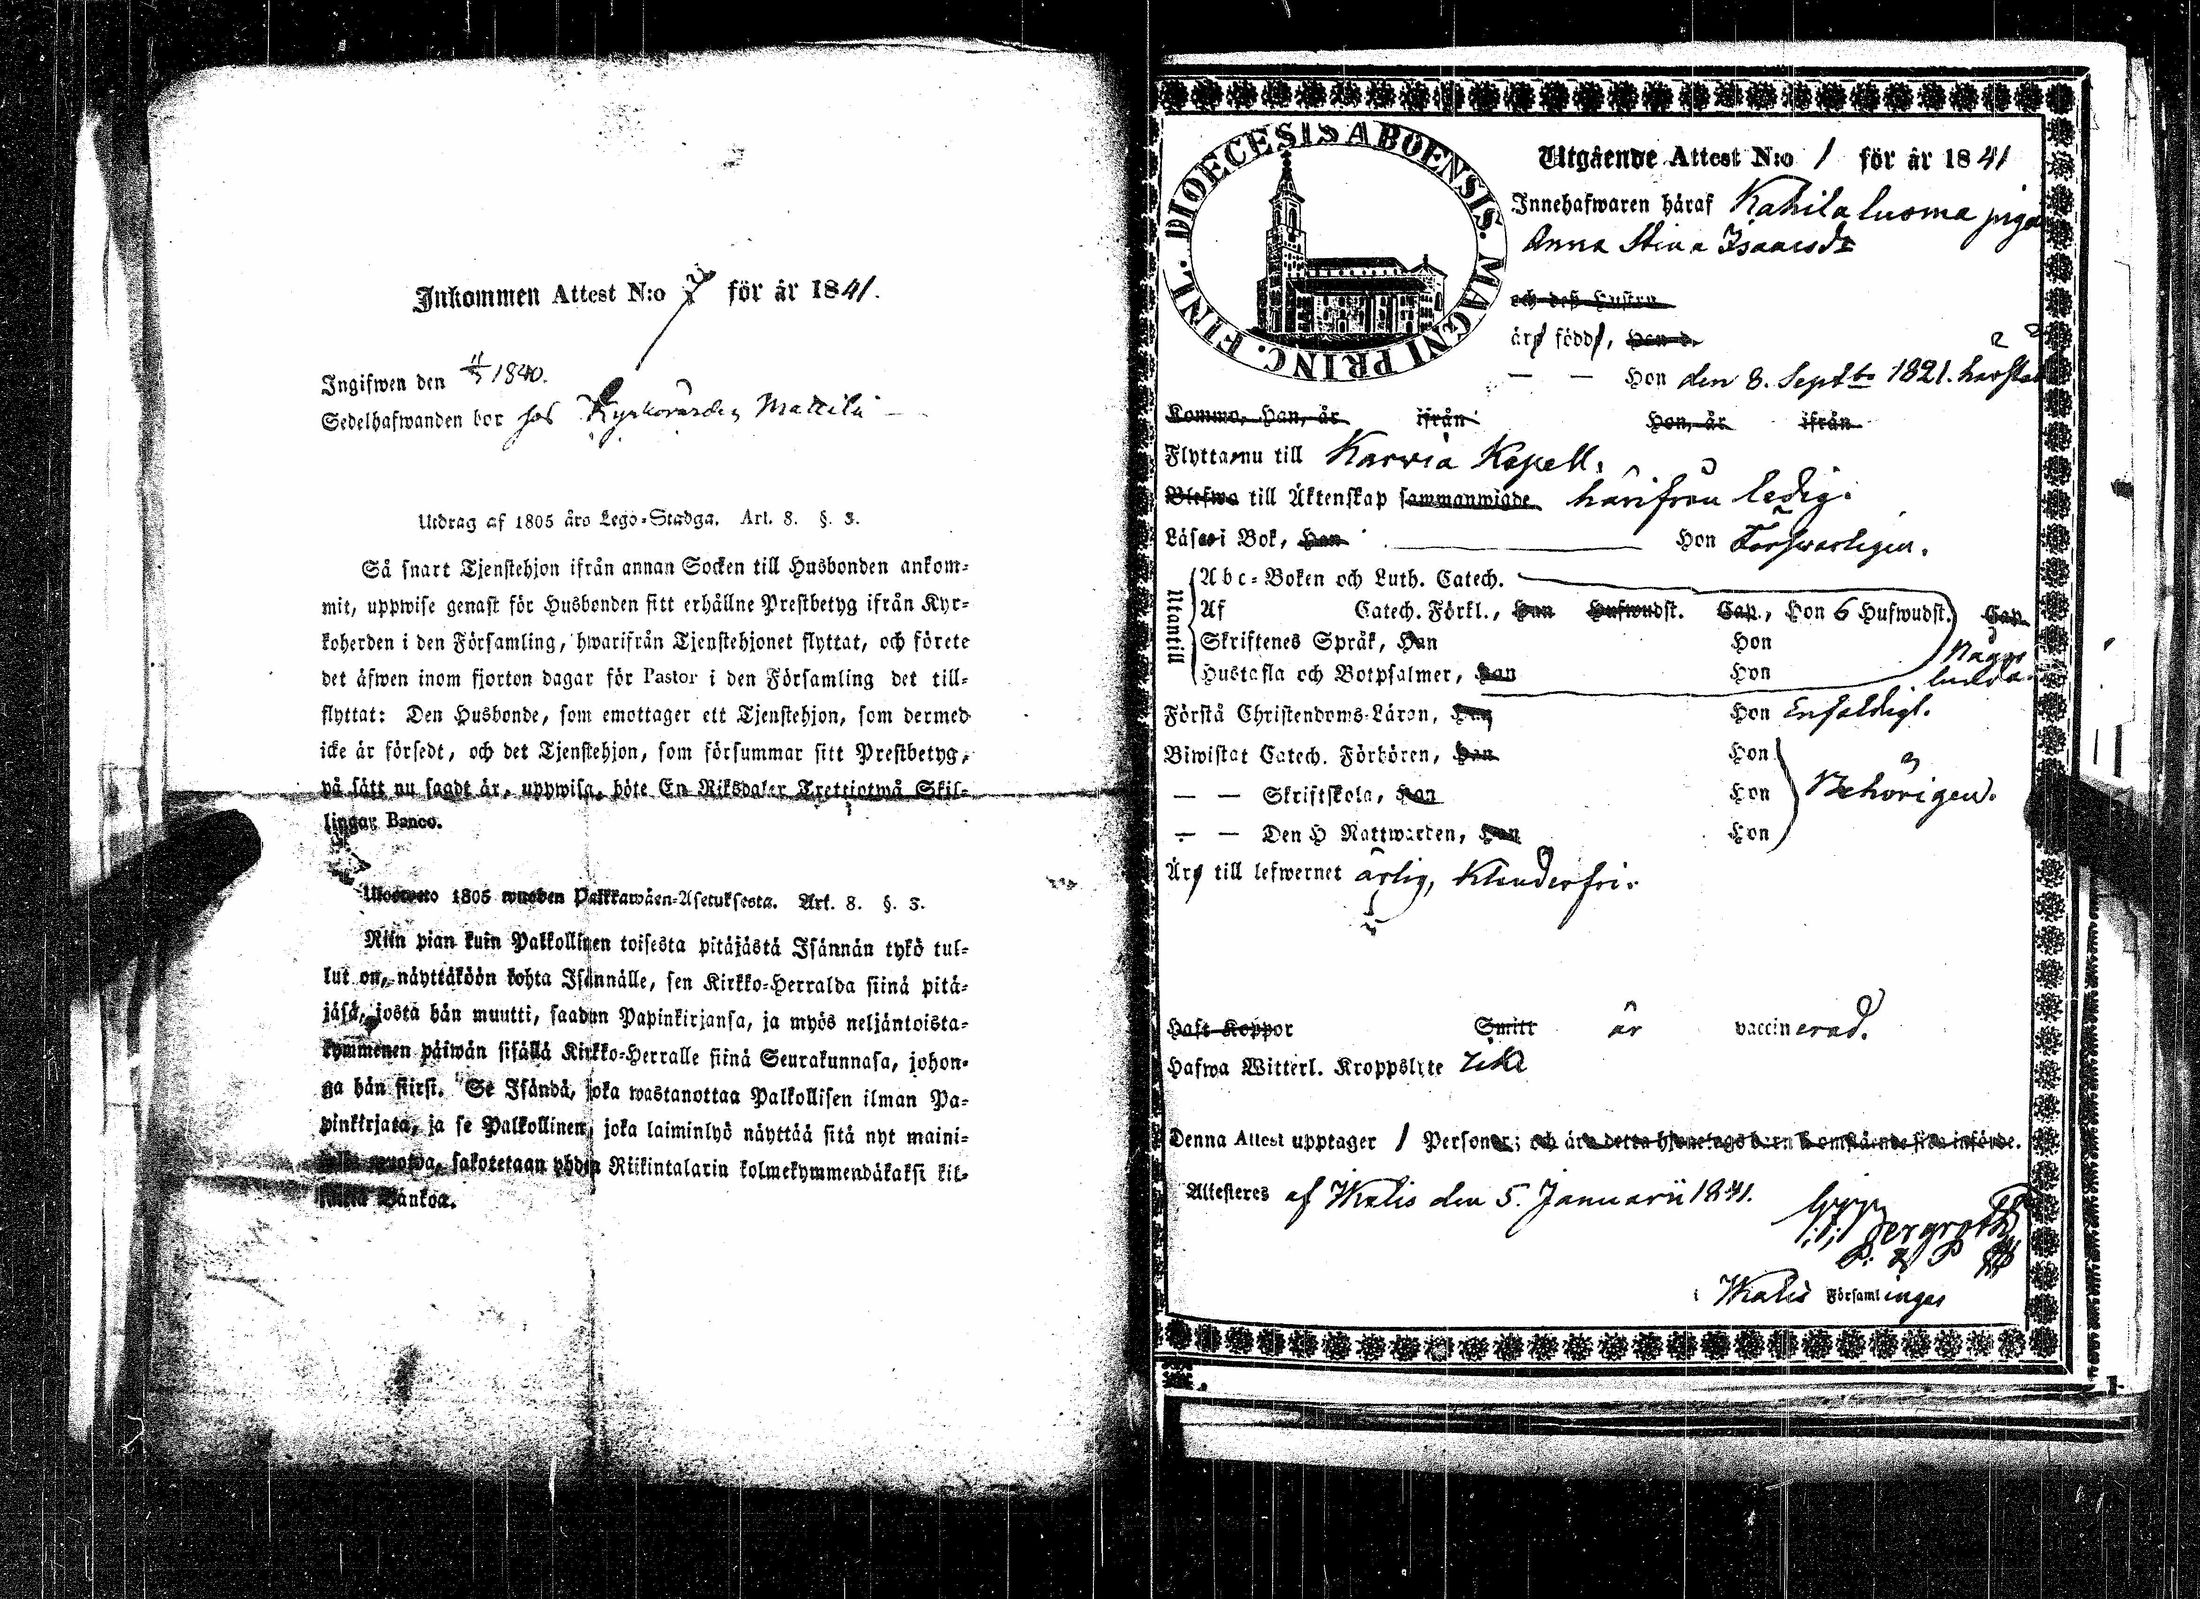 Inkommen Attest N:o för år 1841.
Ingifwen den 1840.
Sedelhafwanden bor hos Kyrkovärden
Utdrag af 1805 års Lego-Stadga. Art. 8. §. 3.
Så snart Tjenstehjon ifrån annan Socken till Husbonden ankom-
mit, uppwise genast för Husbonden sitt erhållne Prestbetyg ifrån Kyr-
koherden i den Församling, hwarifrån Tjenstehjonet flyttat, och förete
det äfwen inom fjorton dagar för Pastor i den Församling det till-
flyttat: Den Husbonde, som emottager ett Tjenstehjon, som dermed
icke är försedt, och det Tjenstehjon, som försummar sitt Prestbetyg,
på sätt nu sagdt är, uppwisa, böte En Riksdaler Trettiotwå Skil-
lingar Banco.
Ulosweto 1805 wuoden Palkkawäen-Asetuksesta. Art. 8. §. 3.
Niin pian kuin Palkollinen toisesta pitäjästä Isännän tykö tul-
lut on, näyttäköön kohta Isännälle, sen Kirkko-Herralda siinä pitä-
jäsä, josta hän muutti, saadun Papinkirjansa, ja myös neljäntoista-
kymmenen päiwän sisällä Kirkko-Herralle siinä Seurakunnasa, johon-
ga hän siirsi. Se Isändä, joka wastanottaa Palkollisen ilman Pa-
pinkirjata, ja se Palkollinen, joka laiminlyö näyttää sitä nyt maini-
sakotetaan yhden Riikintalarin kolmekymmendäkaksi kil-
Bankoa.
DIOECESIS ABOENSIS. MAGNI PRINC. FINL.
Utgående Attest N:o 1 för år 1841
Innehafwaren häraf Kahilaluoma pigan
Anna Stina Isaacsdr
och deß Hustru
äro född, Han d.
— — Hon den 8. Septbr 1821. härstäd
Kommo, Han, år ifrån Hon, år ifrån
Flytta nu till Karvia Kapell.
Blefwo till Äktenskap sammanwigde härifrån ledig.
Läsa i Bok, Han Hon Försvarligen.
Utantill
Abc-Boken och Luth. Catech.
Af Catech. Förkl., Han Hufwudst. Cap., Hon 6 Hufwudst. Cap.
Skriftenes Språk, Han Hon Någor
Hustafla och Botpsalmer, Han Hon lunda.
Förstå Christendoms-Läran, Han Hon Enfaldigt.
Biwistat Catech. Förhören, Han Hon
— — Skriftskola, Han Hon Behörigen.
— — Den H Nattwarden, Han Hon
Äro till lefwernet ärlig, klanderfri.
Haft Koppor Smitt är vaccinerad.
Hafwa Witterl. Kroppslyte icke
Denna Attest upptager 1 Personer; och äro detta hjonelags barn å omstående sida införde.
Attesteres af Ikalis den 5. Januarii 1841.
Bergroth
i Ikalis Församlingar